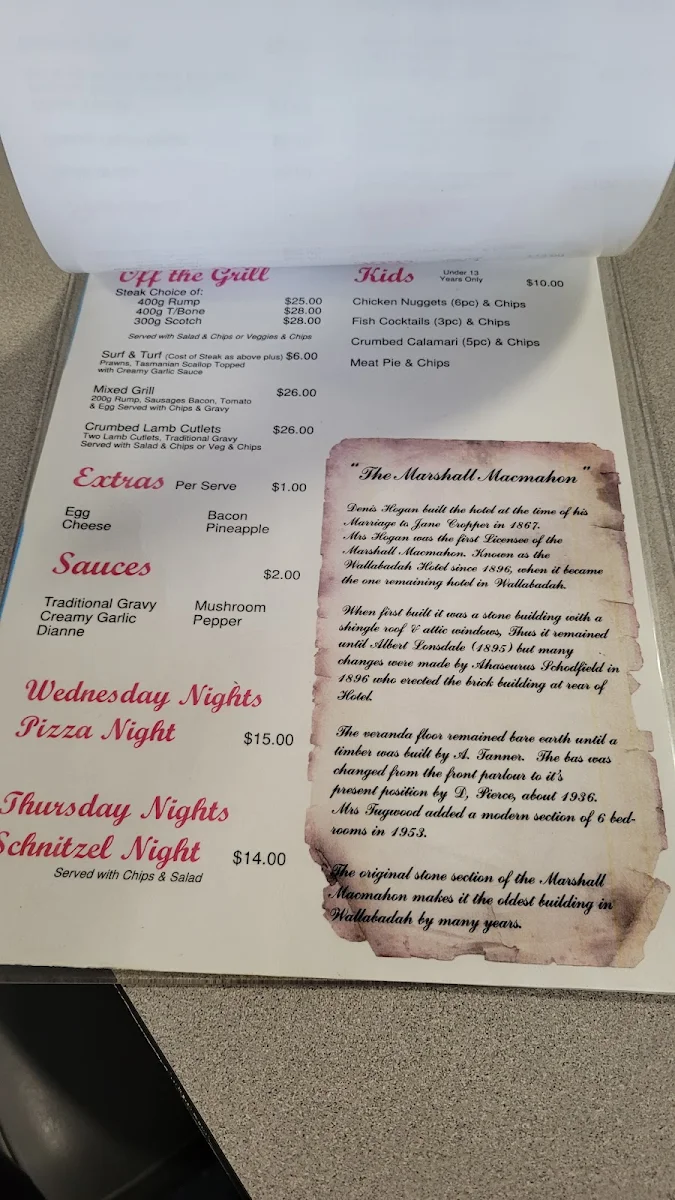 Off the Grill
Steak Choice of:
400g Rump $25.00
400g T/Bone $28.00
300g Scotch $28.00
Served with Salad & Chips or Veggies & Chips
Surf & Turf (Cost of Steak as above plus) $6.00
Prawns, Tasmanian Scallop Topped
with Creamy Garlic Sauce
Mixed Grill $26.00
200g Rump, Sausages Bacon, Tomato
& Egg Served with Chips & Gravy
Crumbed Lamb Cutlets $26.00
Two Lamb Cutlets, Traditional Gravy
Served with Salad & Chips or Veg & Chips
Extras Per Serve $1.00
Egg Bacon
Cheese Pineapple
Sauces $2.00
Traditional Gravy Mushroom
Creamy Garlic Pepper
Dianne
Wednesday Nights
Pizza Night $15.00
Thursday Nights
Schnitzel Night $14.00
Served with Chips & Salad
Kids Under 13 Years Only $10.00
Chicken Nuggets (6pc) & Chips
Fish Cocktails (3pc) & Chips
Crumbed Calamari (5pc) & Chips
Meat Pie & Chips
"The Marshall Macmahon"
Denis Hogan built the hotel at the time of his
Marriage to Jane Cropper in 1867.
Mrs Hogan was the first Licensee of the
Marshall Macmahon. Known as the
Wallabadah Hotel since 1896, when it became
the one remaining hotel in Wallabadah.
When first built it was a stone building with a
shingle roof & attic windows, Thus it remained
until Albert Lonsdale (1895) but many
changes were made by Ahaseurus Schodfield in
1896 who erected the brick building at rear of
Hotel.
The veranda floor remained bare earth until a
timber was built by A. Tanner. The bas was
changed from the front parlour to it's
present position by D, Pierce, about 1936.
Mrs Tugwood added a modern section of 6 bed-
rooms in 1953.
The original stone section of the Marshall
Macmahon makes it the oldest building in
Wallabadah by many years.